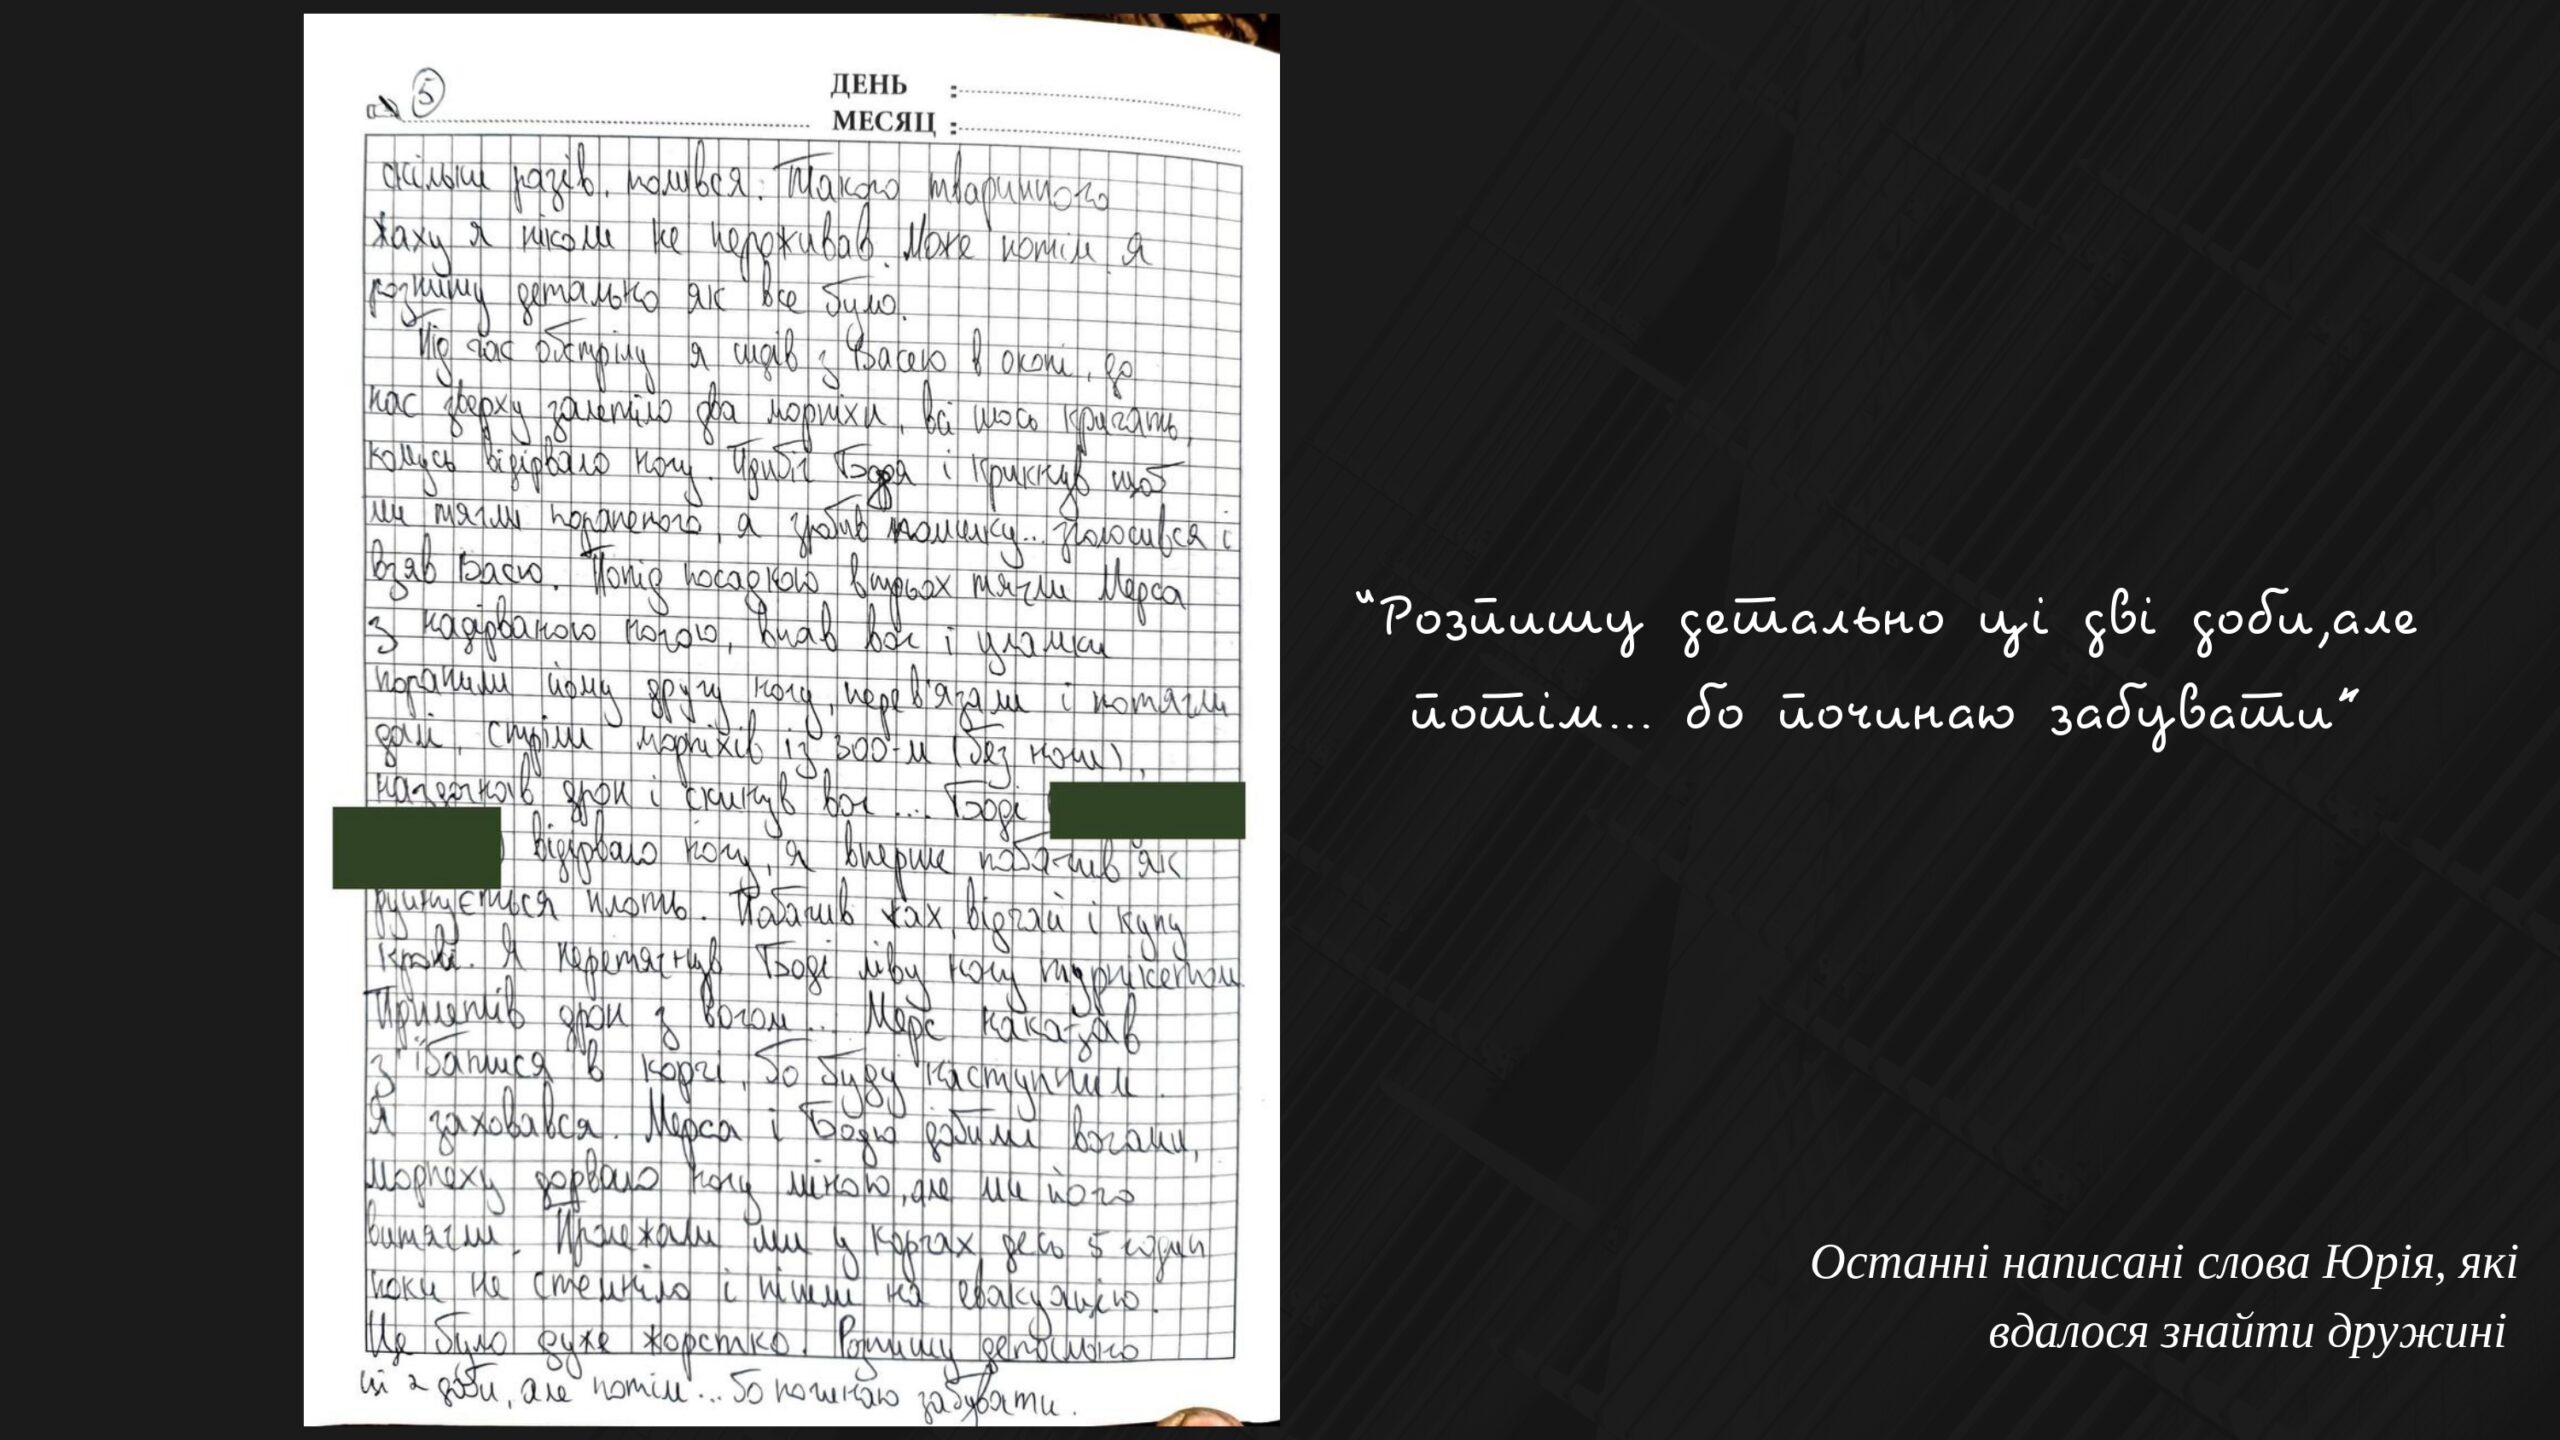 5
ДЕНЬ :
МЕСЯЦ :
скільки разів, молився. Такого тваринного
жаху я ніколи не переживав. Може потім я
розпишу детально як все було.
Під час обстрілу я сидів з Васею в окопі, до
нас зверху залетіло два морпіхи, всі шось кричать,
комусь відірвало ногу. Прибіг Бодя і крикнув щоб
ми тягли пораненого, я зробив помилку... зголосився і
взяв Васю. Попід посадкою втрьох тягли Мерса
з надірваною ногою, впав вог і уламки
поранили йому другу ногу, перев'язали і потягли
далі, стріли морпіхів із 300-м (без ноги),
наздогнав дрон і скинув вог... Боді
) відірвало ногу, я вперше побачив як
руйнується плоть. Побачив жах, відчай і купу
крові. Я перетягнув Боді ліву ногу турнікетом
Прилетів дрон з вогом... Мерс наказав
з'їбатися в корчі, бо буду наступним.
Я заховався. Мерса і Бодю добили вогами,
морпеху дорвало ногу міною, але ми його
витягли. Пролежали ми у корчах десь 5 годин
поки не стемніло і пішли на евакуацію.
Це було дуже жорстко. Розпишу детально
ці 2 доби, але потім... бо починаю забувати.
“Розпишу детально ці дві доби,але
потім... бо починаю забувати“
Останні написані слова Юрія, які
вдалося знайти дружині